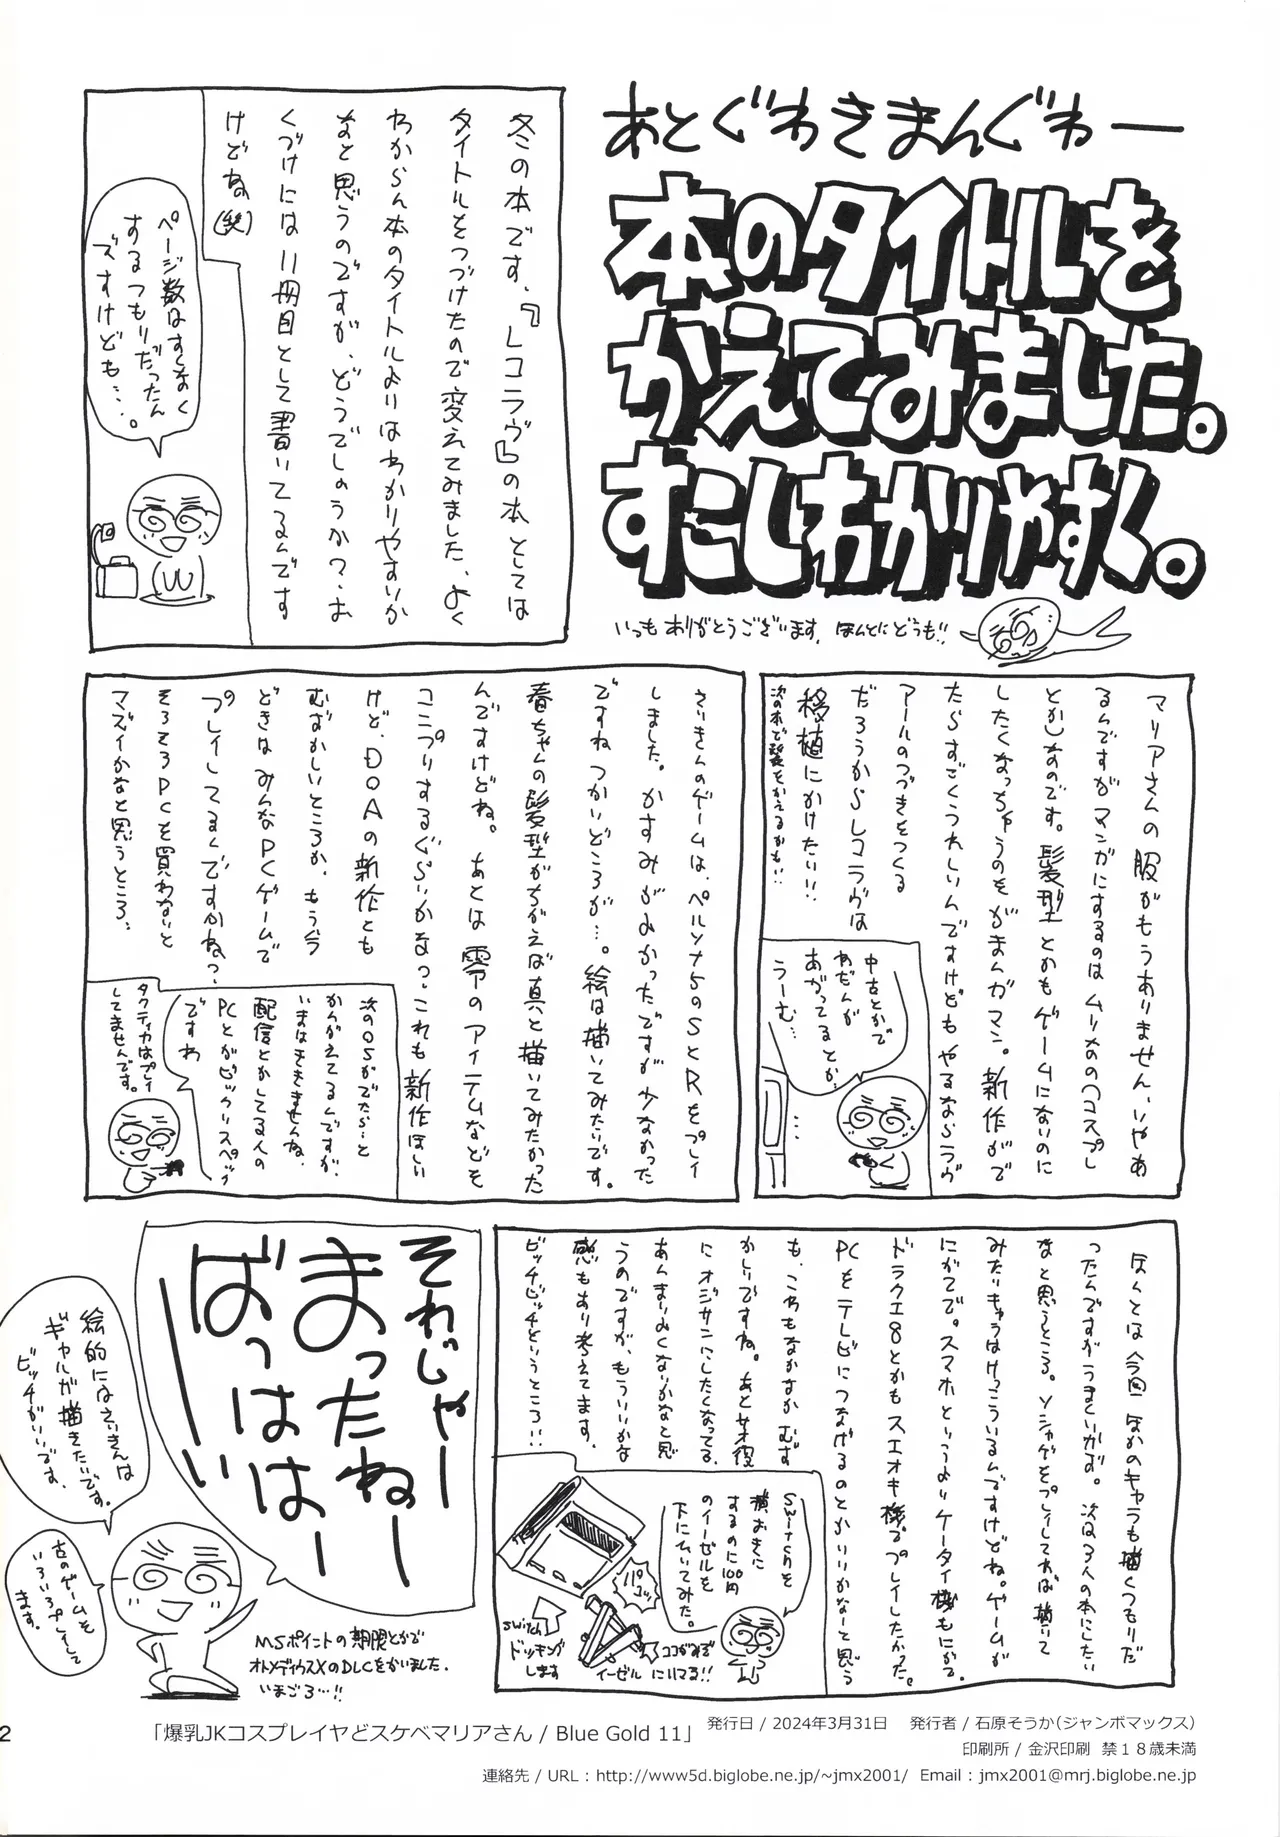 あとぐわきまんぐわー
本のタイトルを
かえてみました。
すこしわかりやすく。
いつもありがとうございます。ほんとにどうも!!
冬の本です。『レコラヴ』の本としては
タイトルをつづけたので変えてみました、よく
わからん本のタイトルよりはわかりやすいか
なと思うのですが、どうでしょうか?、お
くづけには11冊目として書いてるんです
けどね(笑)
ページ数はすくなく
するつもりだったん
ですけども…。
マリアさんの服がもうありません、いやあ
るんですがマンガにするのはムリめの(コスプレ
とか)なのです。髪型とかもゲームにないのに
したくなっちゃうのをがまんガマン。新作がで
たらすごくうれしいんですけどもやるならラヴ
アールのつづきをつくる
だろうからレコラヴは
移植にかけたい!!
次の本で髪をかえるかも!!
中古とかで
ねだんが
あがってるとか。
うーむ…
さいきんのゲームは、ペルソナ5のSとRをプレイ
しました。かすみがよかったですが少なかった
ですね つかいどころが…。絵は描いてみたいです。
春ちゃんの髪型がちがえば真と描いてみたかった
んですけどね。あとは零のアイテムなどを
コンプリするぐらいかなっ。これも新作ほしい
けど、DOAの新作とも
むずかしいところか、もう今
どきはみんなPCゲームで
プレイしてるんですかねっ、
そろそろPCを買わないと
マズイかなと思うところ、
次のOSがでたら…と
かんがえてるんですが、
いまはききませんね、
配信とかしてる人の
PCとかビックリスペック
ですわ
タクティカはプレイ
してませんです。
ほんとは今回ほかのキャラも描くつもりだ
ったんですがうまくいかず。次は3人の本にしたい
なと思うところ。ソシャゲをプレイしてれば描いて
みたいキャラはけっこういるんですけどね。ゲームが
にがてで。スマホというよりケータイ機もにがて。
ドラクエ8とかもスエオキ機でプレイしたかった。
PCをテレビにつなげるのとかいいかなーと思う
も、これもなかなかむず
かしいですね。あと某役
にオジサンにしたくなってる、
あんまーよくないかなと思
うのですが、もういいかな
感もあり考えてます。
ビッチビッチというところ!!
Switchを
横おきに
するのに100円
のイーゼルを
下にひいてみた。
パコッ
Switch
ドッキング
します
イーゼル
ココがみぞ
にいてる!!
それじゃー
まったねー
ばっはは
ーい
絵的にはさいきんは
ギャルが描きたいです。
ビッチがいいです、
古のゲームを
いろいろプレイして
ます。
MSポイントの期限とかで
オトメディウスXのDLCをかいました.
いまごろ…!!
2
「爆乳JKコスプレイヤどスケベマリアさん / Blue Gold 11」 発行日 / 2024年3月31日 発行者 / 石原そうか(ジャンボマックス)
印刷所 / 金沢印刷 禁18歳未満
連絡先 / URL : http://www5d.biglobe.ne.jp/~jmx2001/ Email : jmx2001@mrj.biglobe.ne.jp